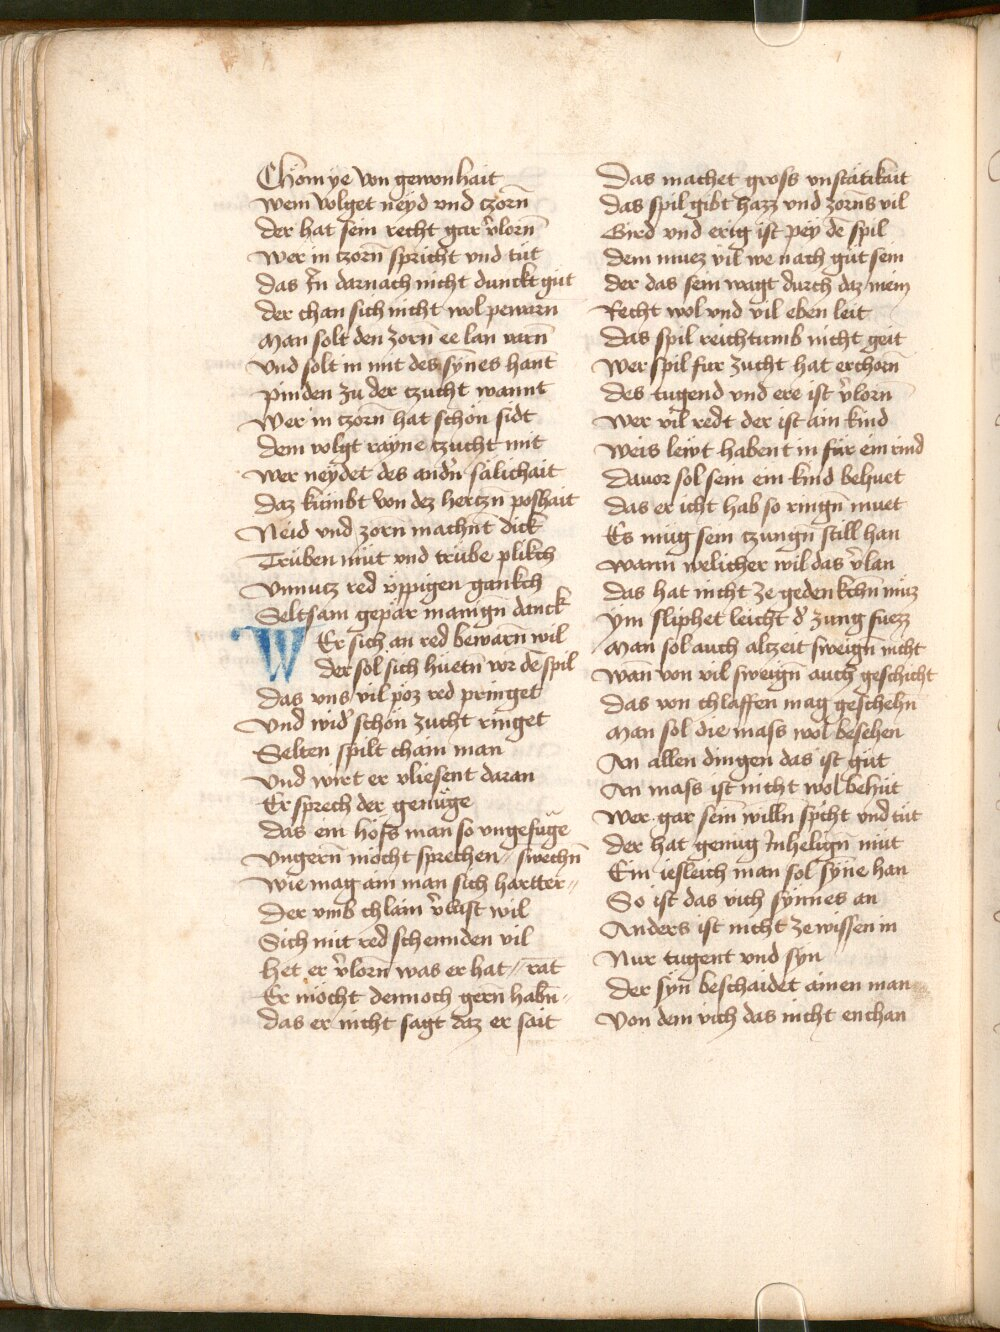 Chom ye von gewonhait
Wem volget neyd vnd czorn̄
der hat sein recht gar v̓lorn̄
Wer in czorn̄ spricht vnd tůt
Das In darnach nicht dunckt gůt
der chan sich nicht wol pewarn
Man solt den zorn̄ ee lan varn̄
Vnd solt in mit des synes hant
Pinden zu der czucht wannt
Wer in czorn̄ hat schon sidt
dem volgt rayne czucht mit
Wer neydet des and̓n̄ sälichait
Daz kümbt von dez herczn̄ poshait
Neid vnd zorn machnt dick
Trüben müt vnd trübe plikch
Vnnucz red üppigen gankch
Seltsam gepär manign̄ danck
WEr sich an red bewarn̄ wil
der sol sich hüetn̄ vor dē spil
das vns vil pöz red pringet
Vnd wid̓ schön zucht ringet
Selten spilt chain man
Vnd wirt er vliesent daran
Er sprech der genüge
Das ein höfs man so vngefüge
Vngern̄ möcht sprechen // swechn̄
Wie mag ain man sich hartter //
Der vmb chlain v̓lust wil
Sich mit red schennden vil
Het er v̓lorn̄ was er hat // rat
Er möcht dennoch gern̄ habn̄ //
das er nicht sagt daz er sait
Das machet gross vnstätikait
das spil gibt hazz vnd zorns vil
Gird vnd erig ist pey dē spil
dem muez vil we nach gut sein
der das sein wagt durch daz mein
Recht wol vnd vil eben leit
Das spil reichtumb nicht geit
Wer spil für zucht hat erchorn̄
des tugend vnd ere ist v̓lorn̄
Wer vil redt der ist ain kind
Weis lewt habent in für ein rind
Dauor sol sein ein kind behuet
das er icht hab so ringn̄ muet
Er müg sein czungn̄ still han
Wann welicher wil das v̓lan
das hat nicht ze gedenkchn̄ müz
Ym sliphet leicht d̓ zung fuezz
Man sol auch alczeit sweign̄ nicht
Wan̄ von vil sweign̄ auch geschicht
Das von chlaffen mag geschehn̄
Man sol die mass wol besehen
An allen dingen das ist gůt
An mass ist nicht wol behüt
Wer gar sein̄ willn̄ sp̓cht vnd tůt
der hat genüg Inhelign̄ müt
Ein iesleich man sol syñe han
So ist das vich synnes an
Anders ist nicht ze wissen in
Nur tugent vnd syn
Der syn̄ beschaidet ainen man
Von dem vich das nicht enchan